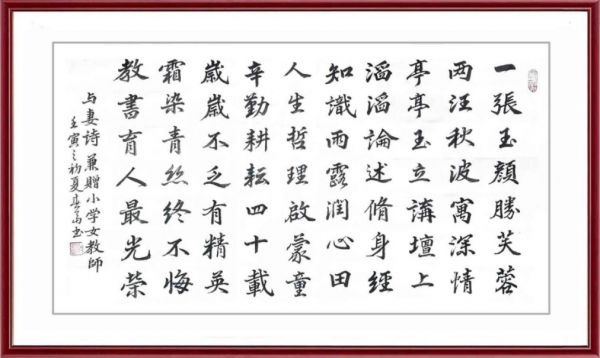 一張玉顔勝芙蓉
两汪秋波寓深情
亭亭玉立講壇上
滔滔論述脩身經
知識雨露潤心田
人生哲理啟蒙童
辛勤耕耘四十載
歲歲不乏有精英
霜染青絲終不悔
教書育人最光榮
与妻詩 兼贈小学女教師
壬寅之初夏